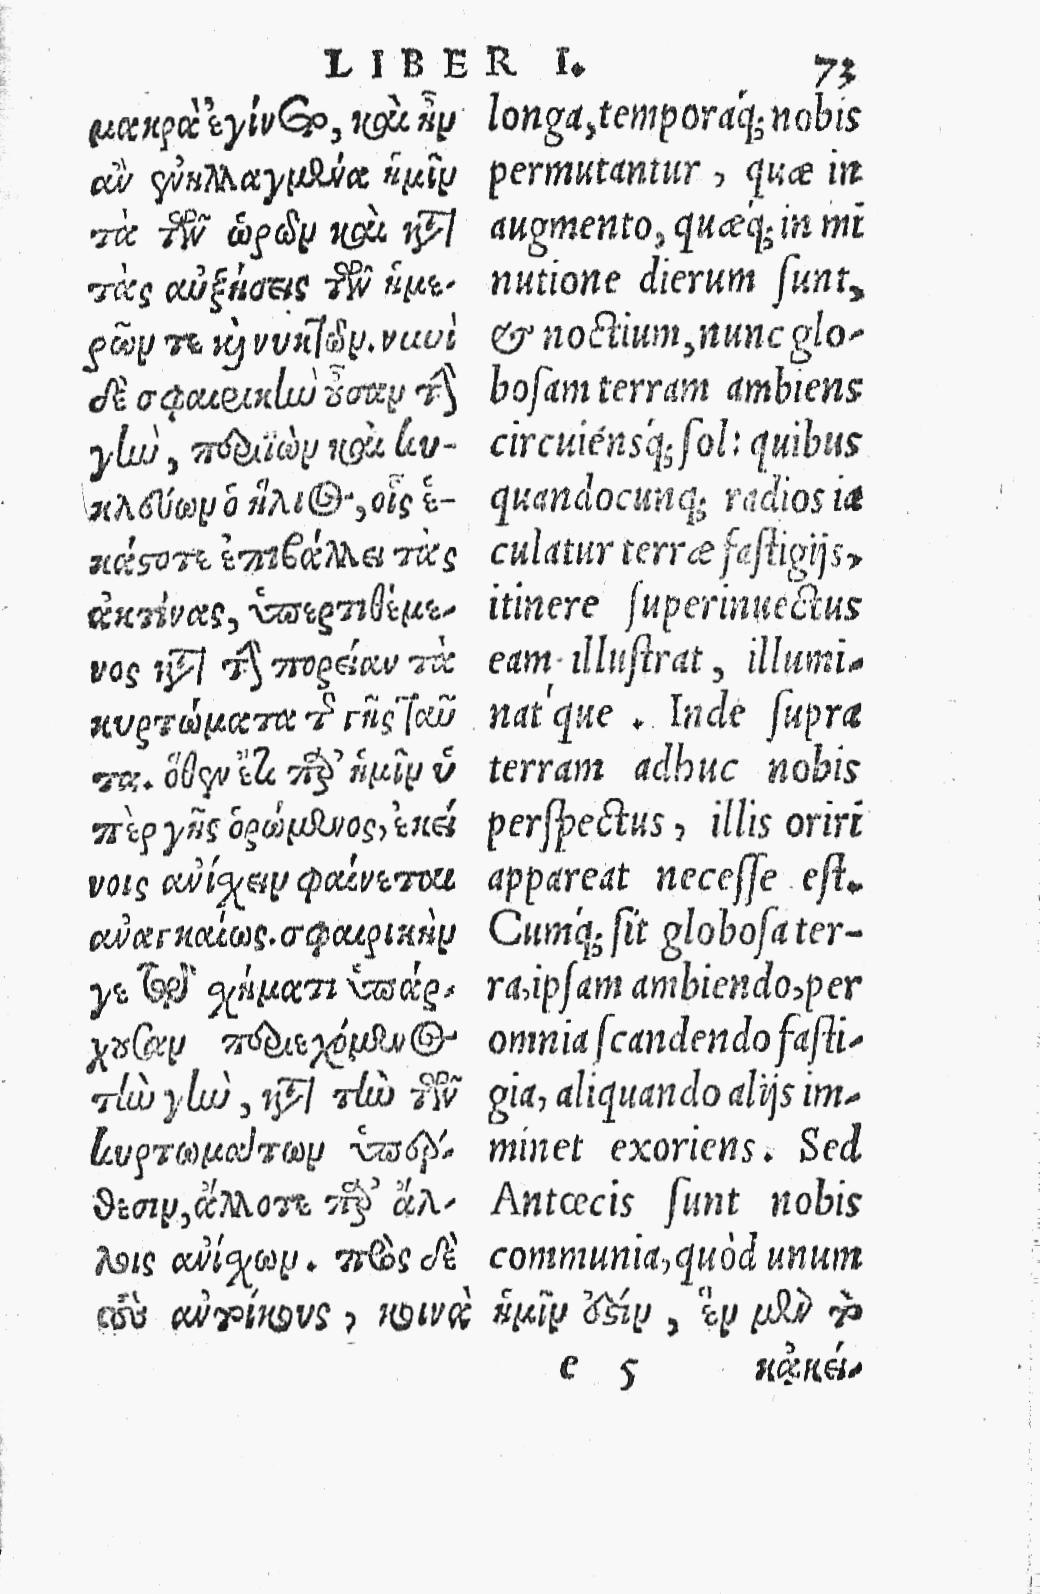 LIBER I. 73
μακρὰ ἐγίνετο, καὶ ἦν
ἂν ἐνηλλαγμένα ἡμῖν
τὰ τῶν ὡρῶν καὶ κατὰ
τὰς αὐξήσεις τῶν ἡμε-
ρῶν τε καὶ νυκτῶν. νυνὶ
δὲ σφαιρικὴν οὖσαν τὴν
γῆν, περιϊὼν καὶ κυ-
κλεύων ὁ ἥλιος, οἷς ἑ-
κάστοτε ἐπιβάλλει τὰς
ἀκτίνας, ὑπερτιθέμε-
νος κατὰ τὴν πορείαν τὰ
κυρτώματα τῆς γῆς ταῦ
τα. ὅθεν ἔτι παρ' ἡμῖν ὑ
πὲρ γῆς ὁρώμενος, ἐκεί
νοις ἀνίσχειν φαίνεται
ἀναγκαίως. σφαιρικὴν
γε τῷ σχήματι ὑπάρ-
χουσαν περιεχόμενος
τὴν γῆν, κατὰ τὴν τῶν
κυρτωμάτων ὑπέρ-
θεσιν, ἄλλοτε παρ' ἄλ-
λοις ἀνίσχων. πρὸς δὲ
τοὺς ἀντοίκους, κοινὰ ἡμῖν ἐστίν, ἓν μὲν τὸ
longa, temporaq́; nobis
permutantur, quæ in
augmento, quæq́; in mi
nutione dierum ſunt,
& noctium, nunc glo-
boſam terram ambiens
circuiénsq́; ſol: quibus
quandocunq; radios ia
culatur terræ faſtigijs,
itinere ſuperinuectus
eam illuſtrat, illumi-
nat'que. Inde ſupra
terram adhuc nobis
perſpectus, illis oriri
appareat neceſſe eſt.
Cumq́; ſit globoſa ter-
ra, ipſam ambiendo, per
omnia ſcandendo faſti-
gia, aliquando alijs im-
minet exoriens. Sed
Antœcis ſunt nobis
communia, quòd unum
e 5 κἀκεί-